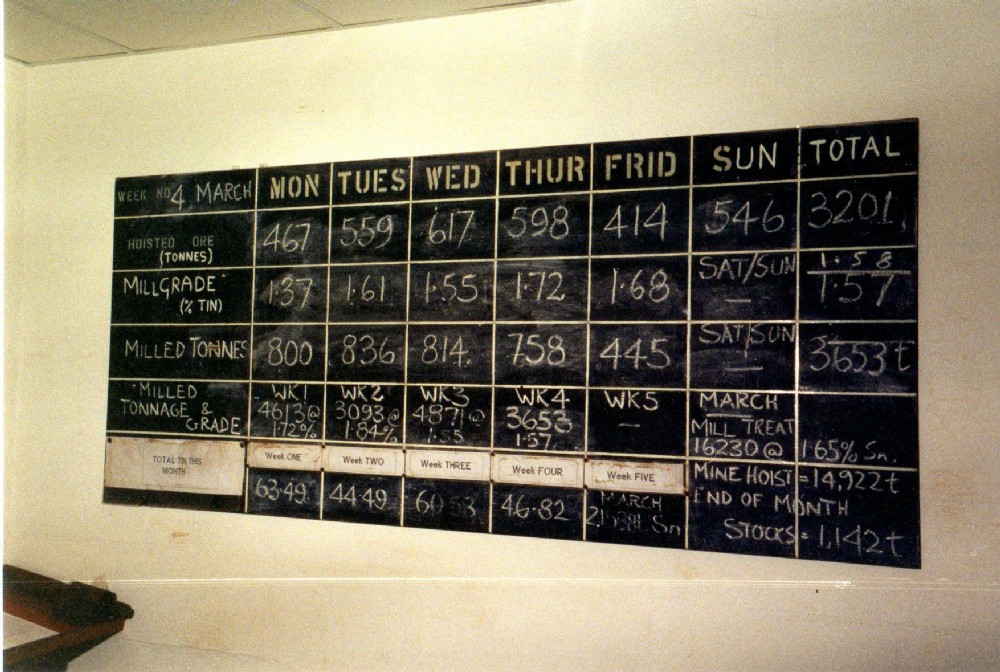 WEEK NO 4 MARCH MON TUES WED THUR FRID SUN TOTAL
HOISTED ORE (TONNES) 467 559 617 598 414 546 3201.
MILLGRADE (% TIN) 1·37 1·61 1·55 1·72 1·68 SAT/SUN — 1·58 1·57
MILLED TONNES 800 836 814. 758 445 SAT/SUN — 3653 t
MILLED TONNAGE & GRADE
WK1 4613@ 1·72%
WK2 3093@ 1·84%
WK3 4871@ 1·55
WK4 3653 1·57
WK5 —
MARCH
MILL TREAT
16230 @ 1·65% Sn.
TOTAL TIN THIS MONTH
Week ONE Week TWO Week THREE Week FOUR Week FIVE
63·49 44·49 46·82 MARCH Sn
MINE HOIST = 14,922 t
END OF MONTH
STOCKS = 1,142 t